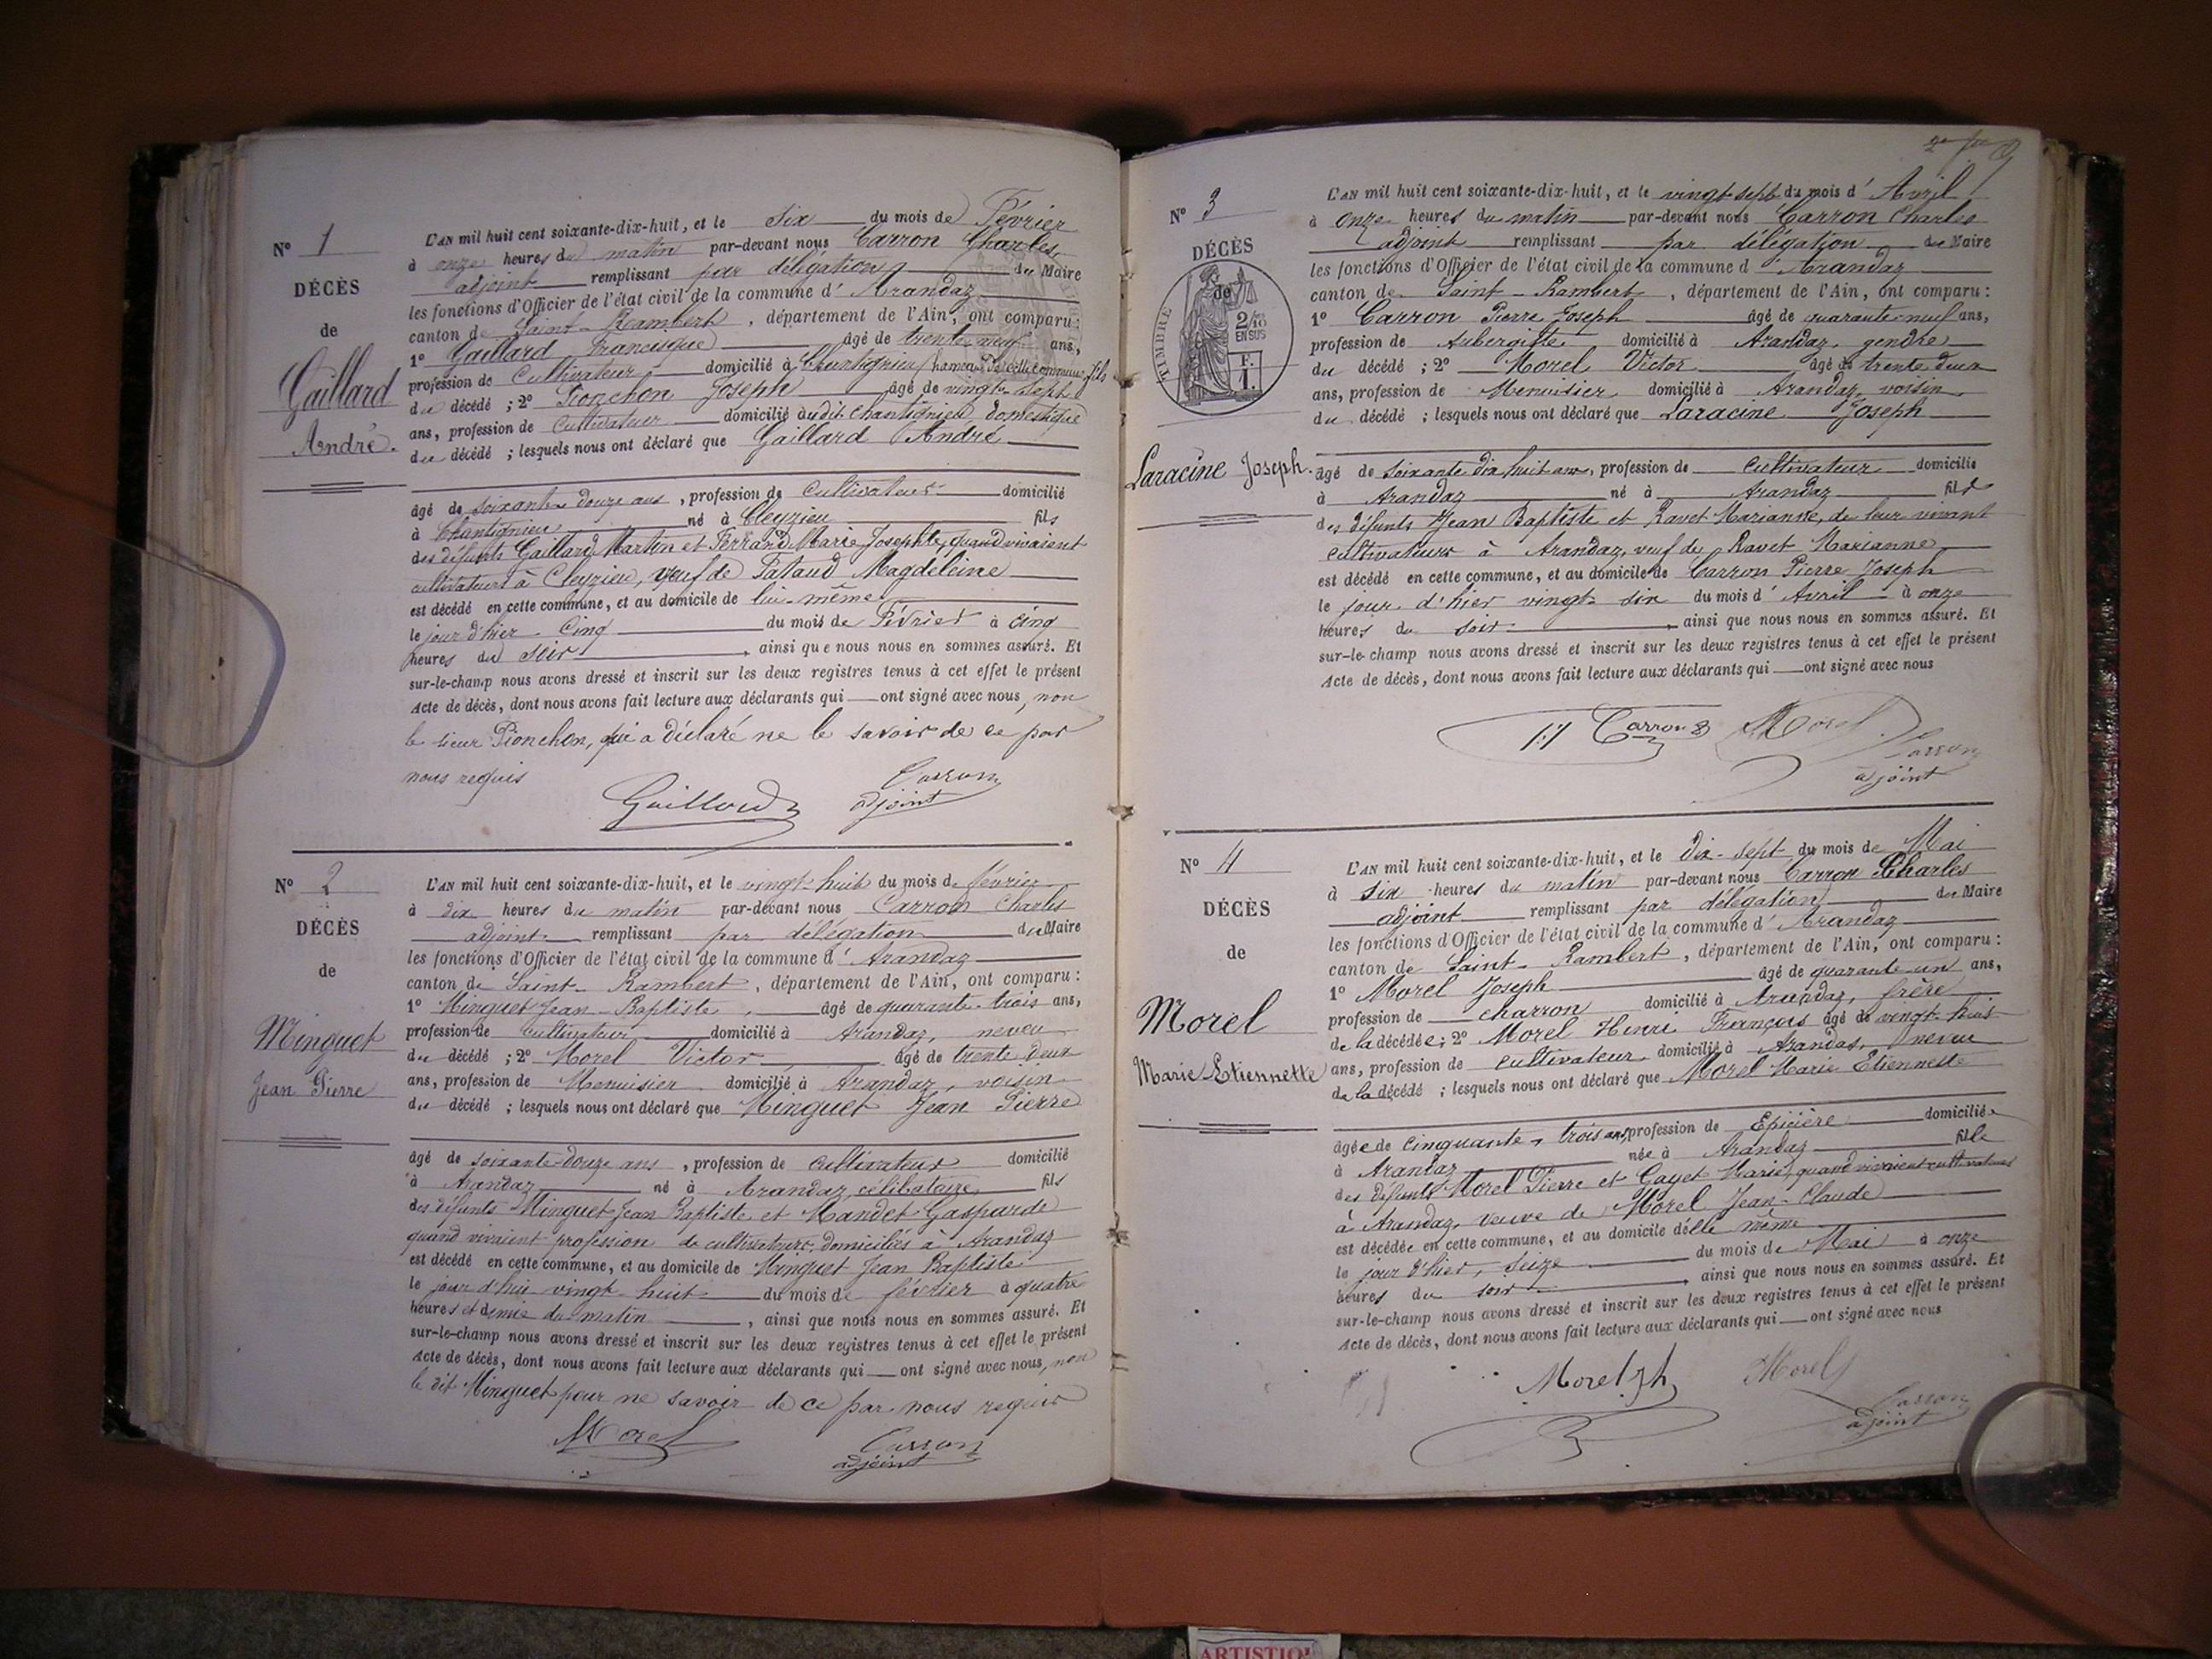 N° 1
DÉCÈS
de
Gaillard
André.
L'AN mil huit cent soixante-dix-huit, et le six du mois de Février
à onze heures du matin par-devant nous Carron Charles
adjoint remplissant par délégation du Maire
les fonctions d'Officier de l'état civil de la commune d'Arandaz
canton de Saint-Rambert, département de l'Ain, ont comparu :
1° Gaillard Francisque âgé de trente neuf ans,
profession de Cultivateur domicilié à Chantignieu hameau de cette commune fils
du décédé ; 2° Pionchon Joseph âgé de vingt-sept
ans, profession de Cultivateur domicilié audit Chantignieu domestique
du décédé ; lesquels nous ont déclaré que Gaillard André
âgé de soixante-douze ans, profession de Cultivateur domicilié
à Chantignieu né à Cleyzieu fils
des défunts Gaillard Martin et Ferrand Marie Josephte, quand vivaient
cultivateurs à Cleyzieu, veuf de Pataud Magdeleine
est décédé en cette commune, et au domicile de lui-même
le jour d'hier cinq du mois de Février à cinq
heures du soir, ainsi que nous nous en sommes assuré. Et
sur-le-champ nous avons dressé et inscrit sur les deux registres tenus à cet effet le présent
Acte de décès, dont nous avons fait lecture aux déclarants qui ont signé avec nous, non
le sieur Pionchon, qui a déclaré ne le savoir de ce par
nous requis
Gaillard Carron
adjoint
N° 2
DÉCÈS
de
Minguet
Jean Pierre
L'AN mil huit cent soixante-dix-huit, et le vingt-huit du mois de février
à dix heures du matin par-devant nous Carron Charles
adjoint remplissant par délégation du Maire
les fonctions d'Officier de l'état civil de la commune d'Arandaz
canton de Saint-Rambert, département de l'Ain, ont comparu :
1° Minguet Jean-Baptiste, âgé de quarante-trois ans,
profession de cultivateur domicilié à Arandaz, neveu
du décédé ; 2° Morel Victor âgé de trente deux
ans, profession de Menuisier domicilié à Arandaz, voisin
du décédé ; lesquels nous ont déclaré que Minguet Jean Pierre
âgé de soixante-douze ans, profession de cultivateur domicilié
à Arandaz né à Arandaz, célibataire fils
des défunts Minguet Jean Baptiste et Mandet Gasparde
quand vivaient profession de cultivateurs, domiciliés à Arandaz
est décédé en cette commune, et au domicile de Minguet Jean Baptiste
le jour d'hui vingt-huit du mois de février à quatre
heures et demie du matin, ainsi que nous nous en sommes assuré. Et
sur-le-champ nous avons dressé et inscrit sur les deux registres tenus à cet effet le présent
Acte de décès, dont nous avons fait lecture aux déclarants qui ont signé avec nous, non
le dit Minguet pour ne savoir de ce par nous requis
Morel Carron
adjoint
N° 3
DÉCÈS
de
TIMBRE
2/10
EN SUS
F.
1.
Laracine Joseph.
L'AN mil huit cent soixante-dix-huit, et le vingt-sept du mois d'Avril
à onze heures du matin par-devant nous Carron Charles
adjoint remplissant par délégation du Maire
les fonctions d'Officier de l'état civil de la commune d'Arandaz
canton de Saint-Rambert, département de l'Ain, ont comparu :
1° Carron Pierre Joseph âgé de quarante-neuf ans,
profession de Aubergiste domicilié à Arandaz, gendre
du décédé ; 2° Morel Victor âgé de trente deux
ans, profession de Menuisier domicilié à Arandaz, voisin
du décédé ; lesquels nous ont déclaré que Laracine Joseph
âgé de soixante dix huit ans, profession de cultivateur domicilié
à Arandaz né à Arandaz fils
des défunts Jean Baptiste et Ravet Marianne, de leur vivant
cultivateurs à Arandaz, veuf de Ravet Marianne
est décédé en cette commune, et au domicile de Carron Pierre Joseph
le jour d'hier vingt-six du mois d'Avril à onze
heures du soir, ainsi que nous nous en sommes assuré. Et
sur-le-champ nous avons dressé et inscrit sur les deux registres tenus à cet effet le présent
Acte de décès, dont nous avons fait lecture aux déclarants qui ont signé avec nous
Carron Morel Carron
adjoint
N° 4
DÉCÈS
de
Morel
Marie Etiennette
L'AN mil huit cent soixante-dix-huit, et le dix-sept du mois de Mai
à six heures du matin par-devant nous Carron Charles
adjoint remplissant par délégation du Maire
les fonctions d'Officier de l'état civil de la commune d'Arandaz
canton de Saint-Rambert, département de l'Ain, ont comparu :
1° Morel Joseph âgé de quarante-un ans,
profession de charron domicilié à Arandaz, frère
de la décédée ; 2° Morel Henri François âgé de vingt-huit
ans, profession de cultivateur domicilié à Arandas, neveu
de la décédé ; lesquels nous ont déclaré que Morel Marie Etiennette
âgée de cinquante-trois ans, profession de Epicière domiciliée
à Arandaz née à Arandaz fille
des défunts Morel Pierre et Gayet Marie, quand vivaient cultivateurs
à Arandaz, veuve de Morel Jean-Claude
est décédée en cette commune, et au domicile d'elle même
le jour d'hier, seize du mois de Mai à onze
heures du soir, ainsi que nous nous en sommes assuré. Et
sur-le-champ nous avons dressé et inscrit sur les deux registres tenus à cet effet le présent
Acte de décès, dont nous avons fait lecture aux déclarants qui ont signé avec nous
Morel Jh Morel Carron
adjoint